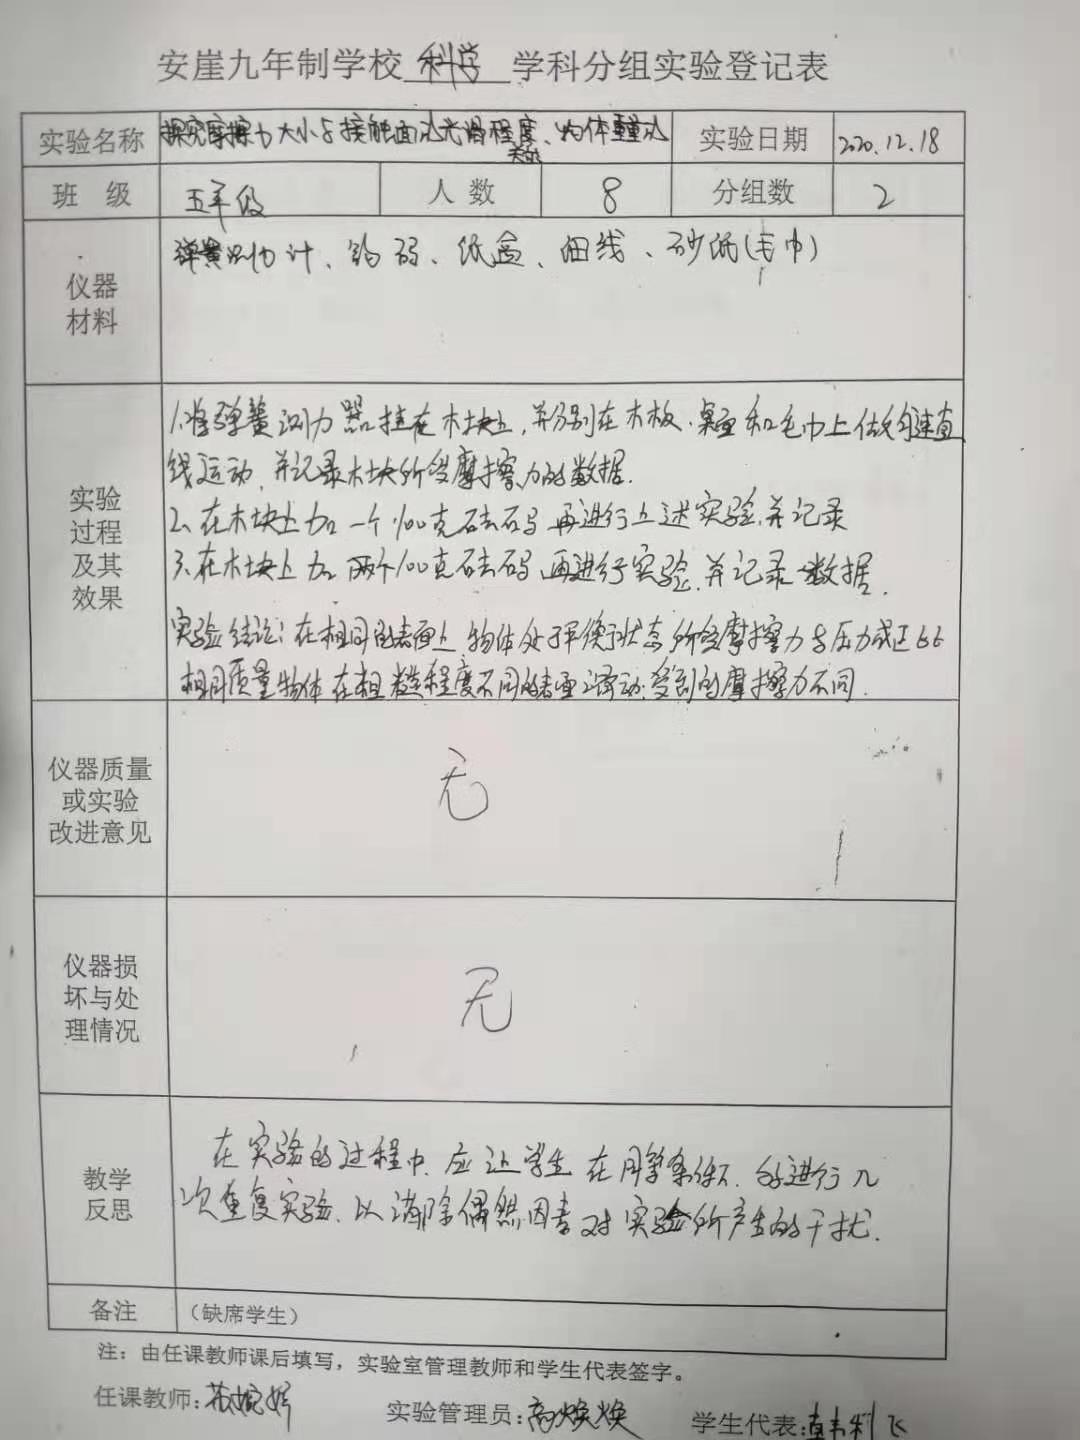 安崖九年制学校 科学 学科分组实验登记表
实验名称 探究摩擦力大小与接触面的光滑程度、物体重量的关系 实验日期 2020.12.18
班 级 五年级 人数 8 分组数 2
仪器材料 弹簧测力计、钩码、纸盒、细线、砂纸(毛巾)
实验过程及其效果
1.将弹簧测力器挂在木块上,并分别在木板.桌面和毛巾上做匀速直
线运动,并记录木块所受摩擦力的数据.
2、在木块上加一个100克砝码再进行上述实验,并记录
3、在木块上加两个100克砝码,再进行实验,并记录数据.
实验结论:在相同的表面上,物体处于平衡状态所受摩擦力与压力成正比
相同质量物体在粗糙程度不同的表面上滑动,受到的摩擦力不同.
仪器质量或实验改进意见 无
仪器损坏与处理情况 无
教学反思
在实验的过程中,应让学生在同等条件下,多进行几
次重复实验,以消除偶然因素对实验所产生的干扰.
备注 (缺席学生)
注:由任课教师课后填写,实验室管理教师和学生代表签字。
任课教师: 实验管理员:高焕焕 学生代表: